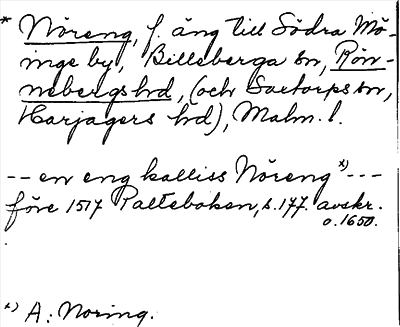 * Nöreng, f. äng till Södra Mö-
inge by, Billeberga sn, Rön-
nebergs hd, (och Saxtorps sn,
Harjagers hd), Malm. l.
-- en eng kalliss Nöreng x) ---
före 1517 Palteboken, s. 177. avskr.
o. 1650.
x) A: Noring.